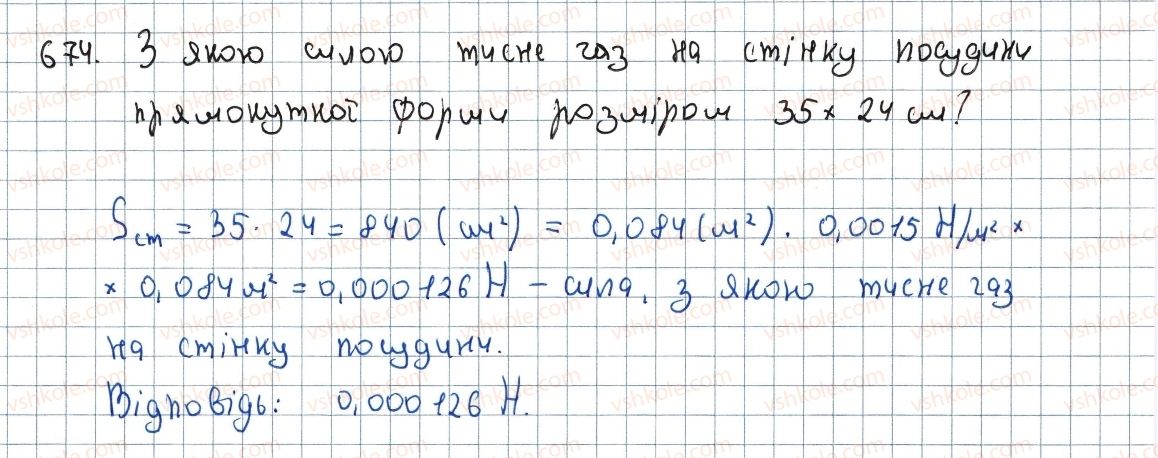 674. З якою силою тисне газ на стінку посудини
прямокутної форми розміром 35 × 24 см?
Sст = 35 · 24 = 840 (см²) = 0,084 (м²). 0,0015 Н/м² ×
× 0,084 м² = 0,000126 Н – сила, з якою тисне газ
на стінку посудини.
Відповідь: 0,000126 Н.